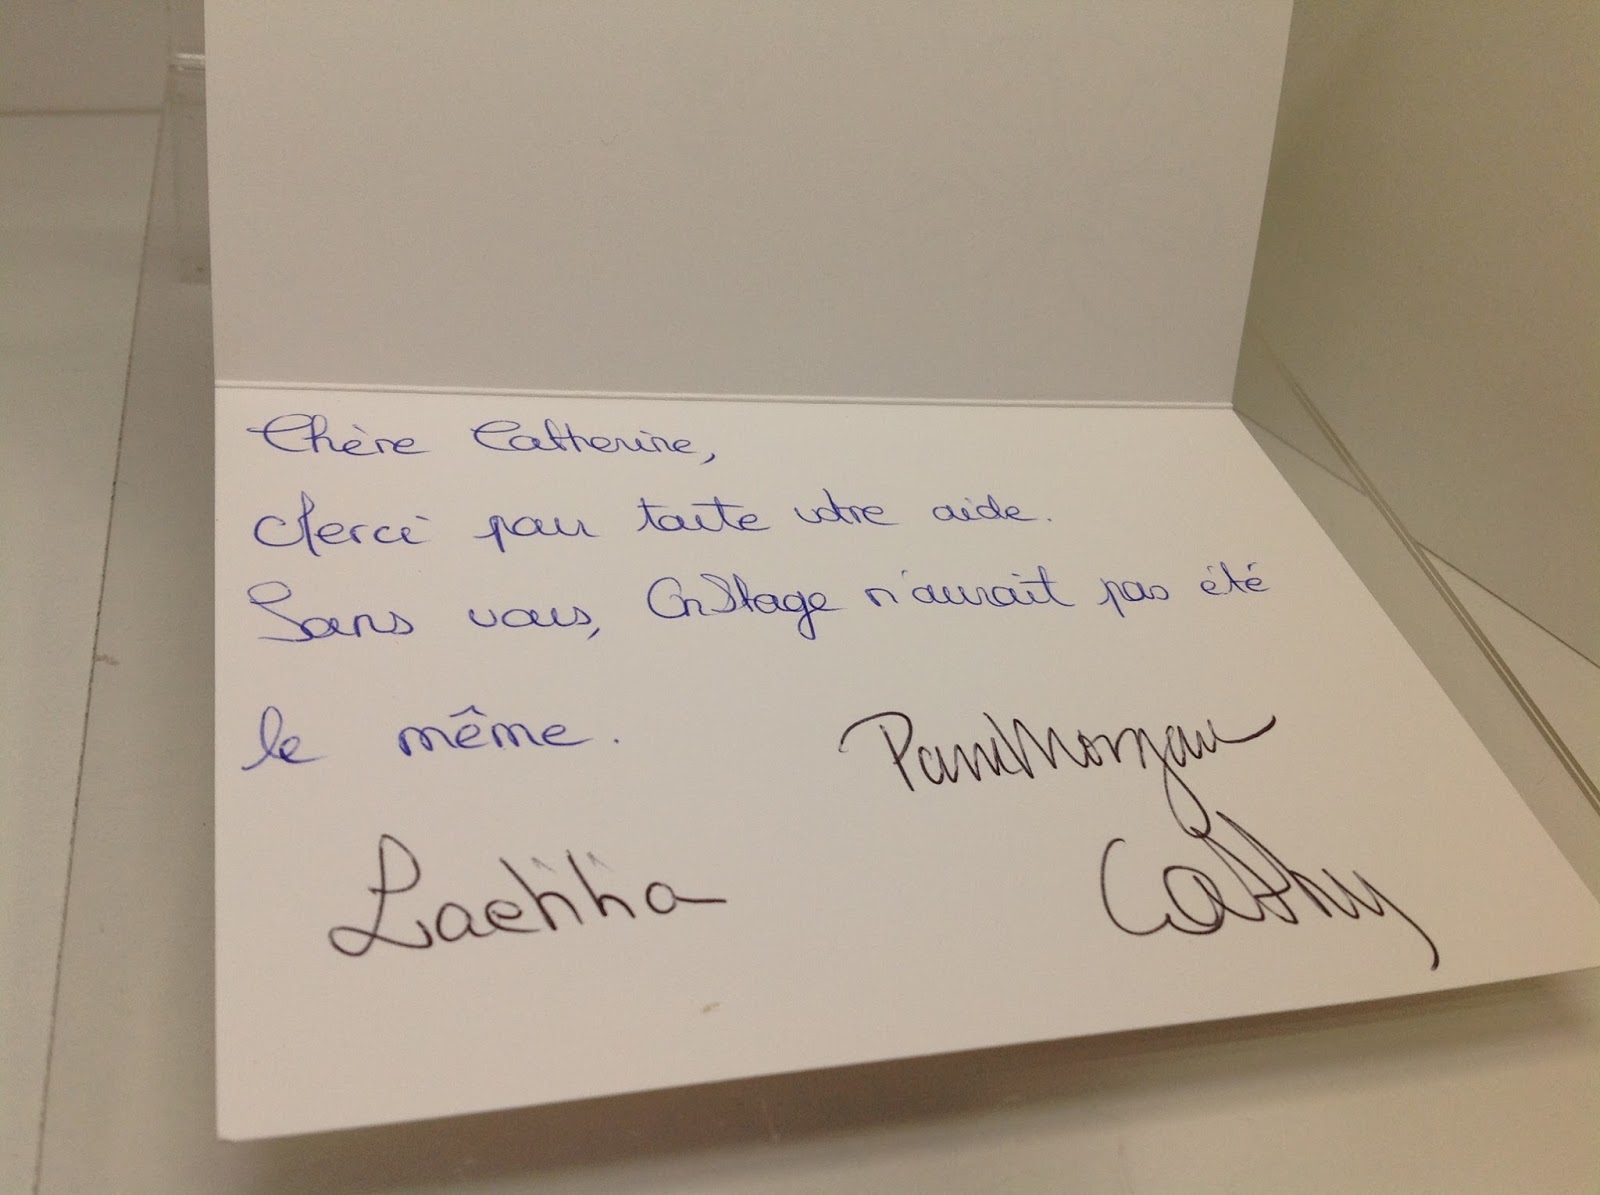 Chère Catherine,
Merci pour toute votre aide.
Sans vous, OnStage n'aurait pas été
le même.
Pam Morgan
Laetitia
Cathy